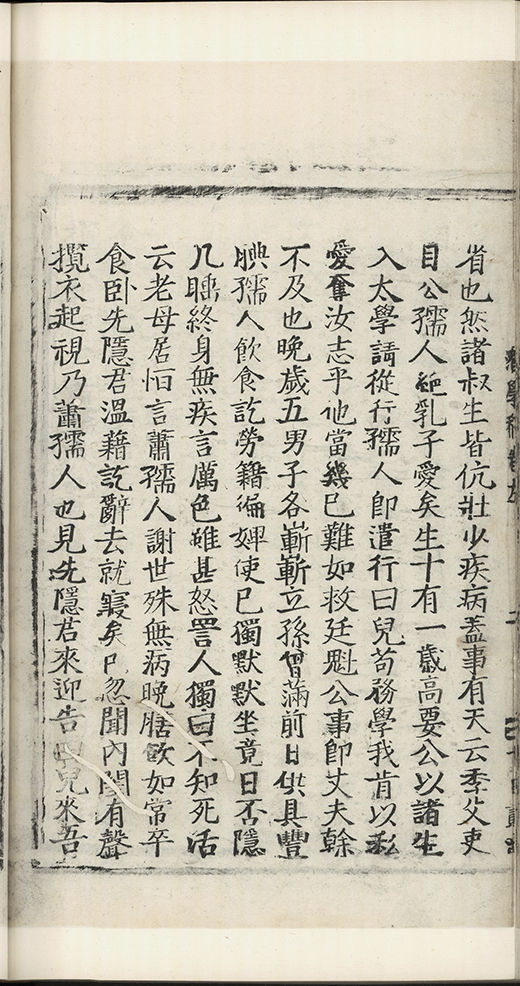 省也然諸叔生皆伉壯少疾病葢事有天云季父吏
目公孺人絕乳子愛矣生十有一歲高要公以諸生
入太學請從行孺人即遣行曰兒苟務學我肯以私
愛奪汝志乎他當幾已難如救廷魁公事即丈夫榦
不及也晚歲五男子各嶄嶄立孫曾滿前日供具豐
腆孺人飲食訖勞籍徧婢使已獨默默坐竟日否隱
几瞌終身無疾言厲色雖甚怒詈人獨曰不知死活
云老母居恒言蕭孺人謝世殊無病晚膳飲如常卒
食臥先隱君溫藉訖辭去就寢矣已忽聞內閤有聲
攬衣起視乃蕭孺人也見先隱君來迎告曰兒來吾